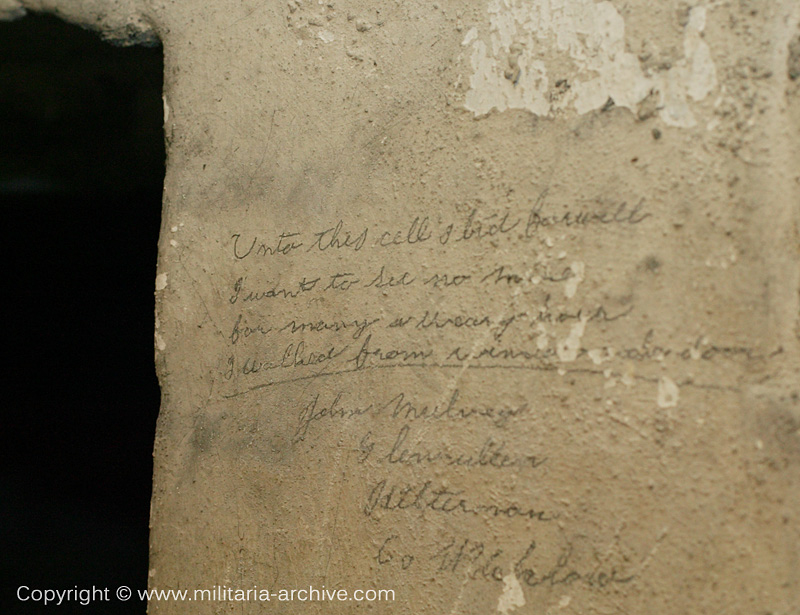 Unto this cell I bid farwell
I want to see no more
for many a weary hour
I walked from window to door
John Mulvey
Kilternan
Co Wicklow
Copyright © www.militaria-archive.com